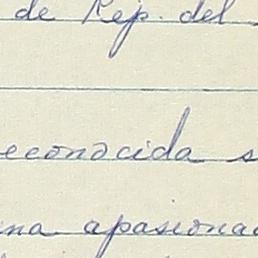 de Rep. del
econocida s
na apasionad